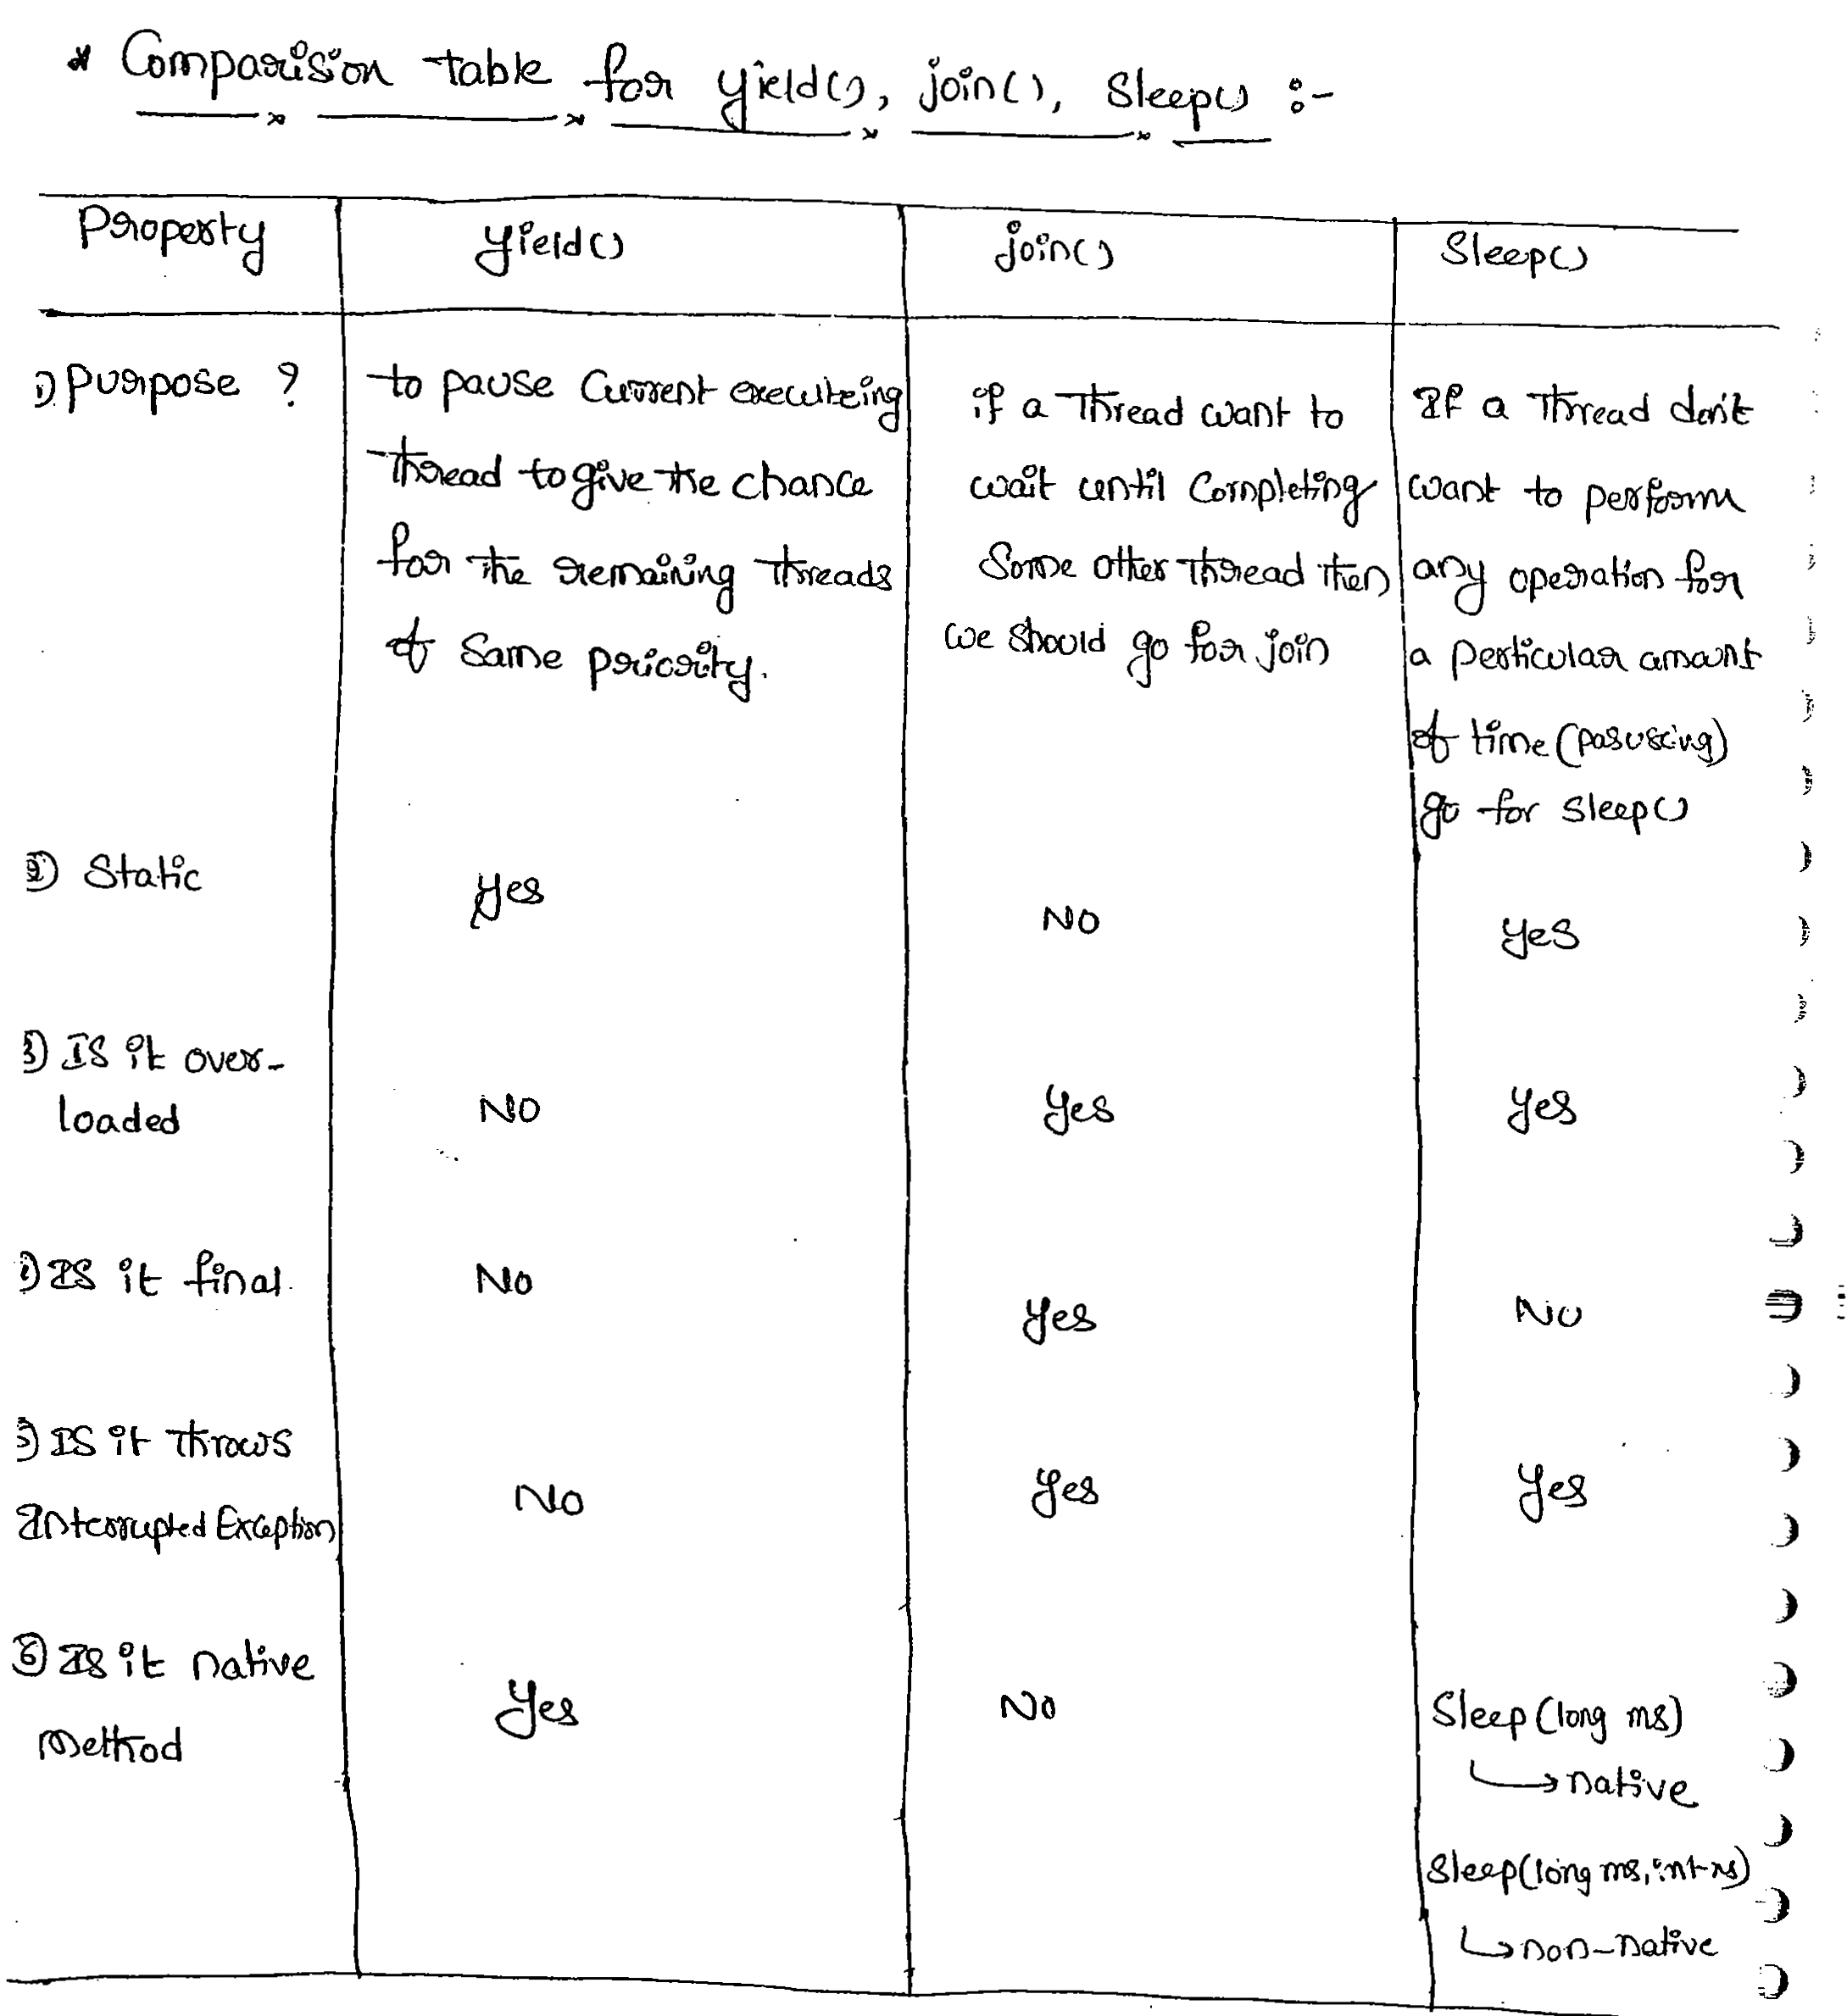 * Comparision table for yield(), join(), Sleep() :-
Property
yield()
join()
Sleep()
1) Purpose ?
to pause Current executeing
Thread to give the chance
for the remaining threads
of Same priority.
if a Thread want to
wait until Completing
Some other Thread then
we should go for join
If a Thread don't
want to perform
any operation for
a perticular amount
of time (pasuseing)
go for Sleep()
2) Static
Yes
No
Yes
3) Is it over-
loaded
No
Yes
Yes
4) Is it final.
No
Yes
No
5) Is it Throws
Interrupted Exception
No
Yes
Yes
6) Is it native
Method
Yes
No
Sleep (long ms)
↳ native
Sleep(long ms, int ns)
↳ non-native